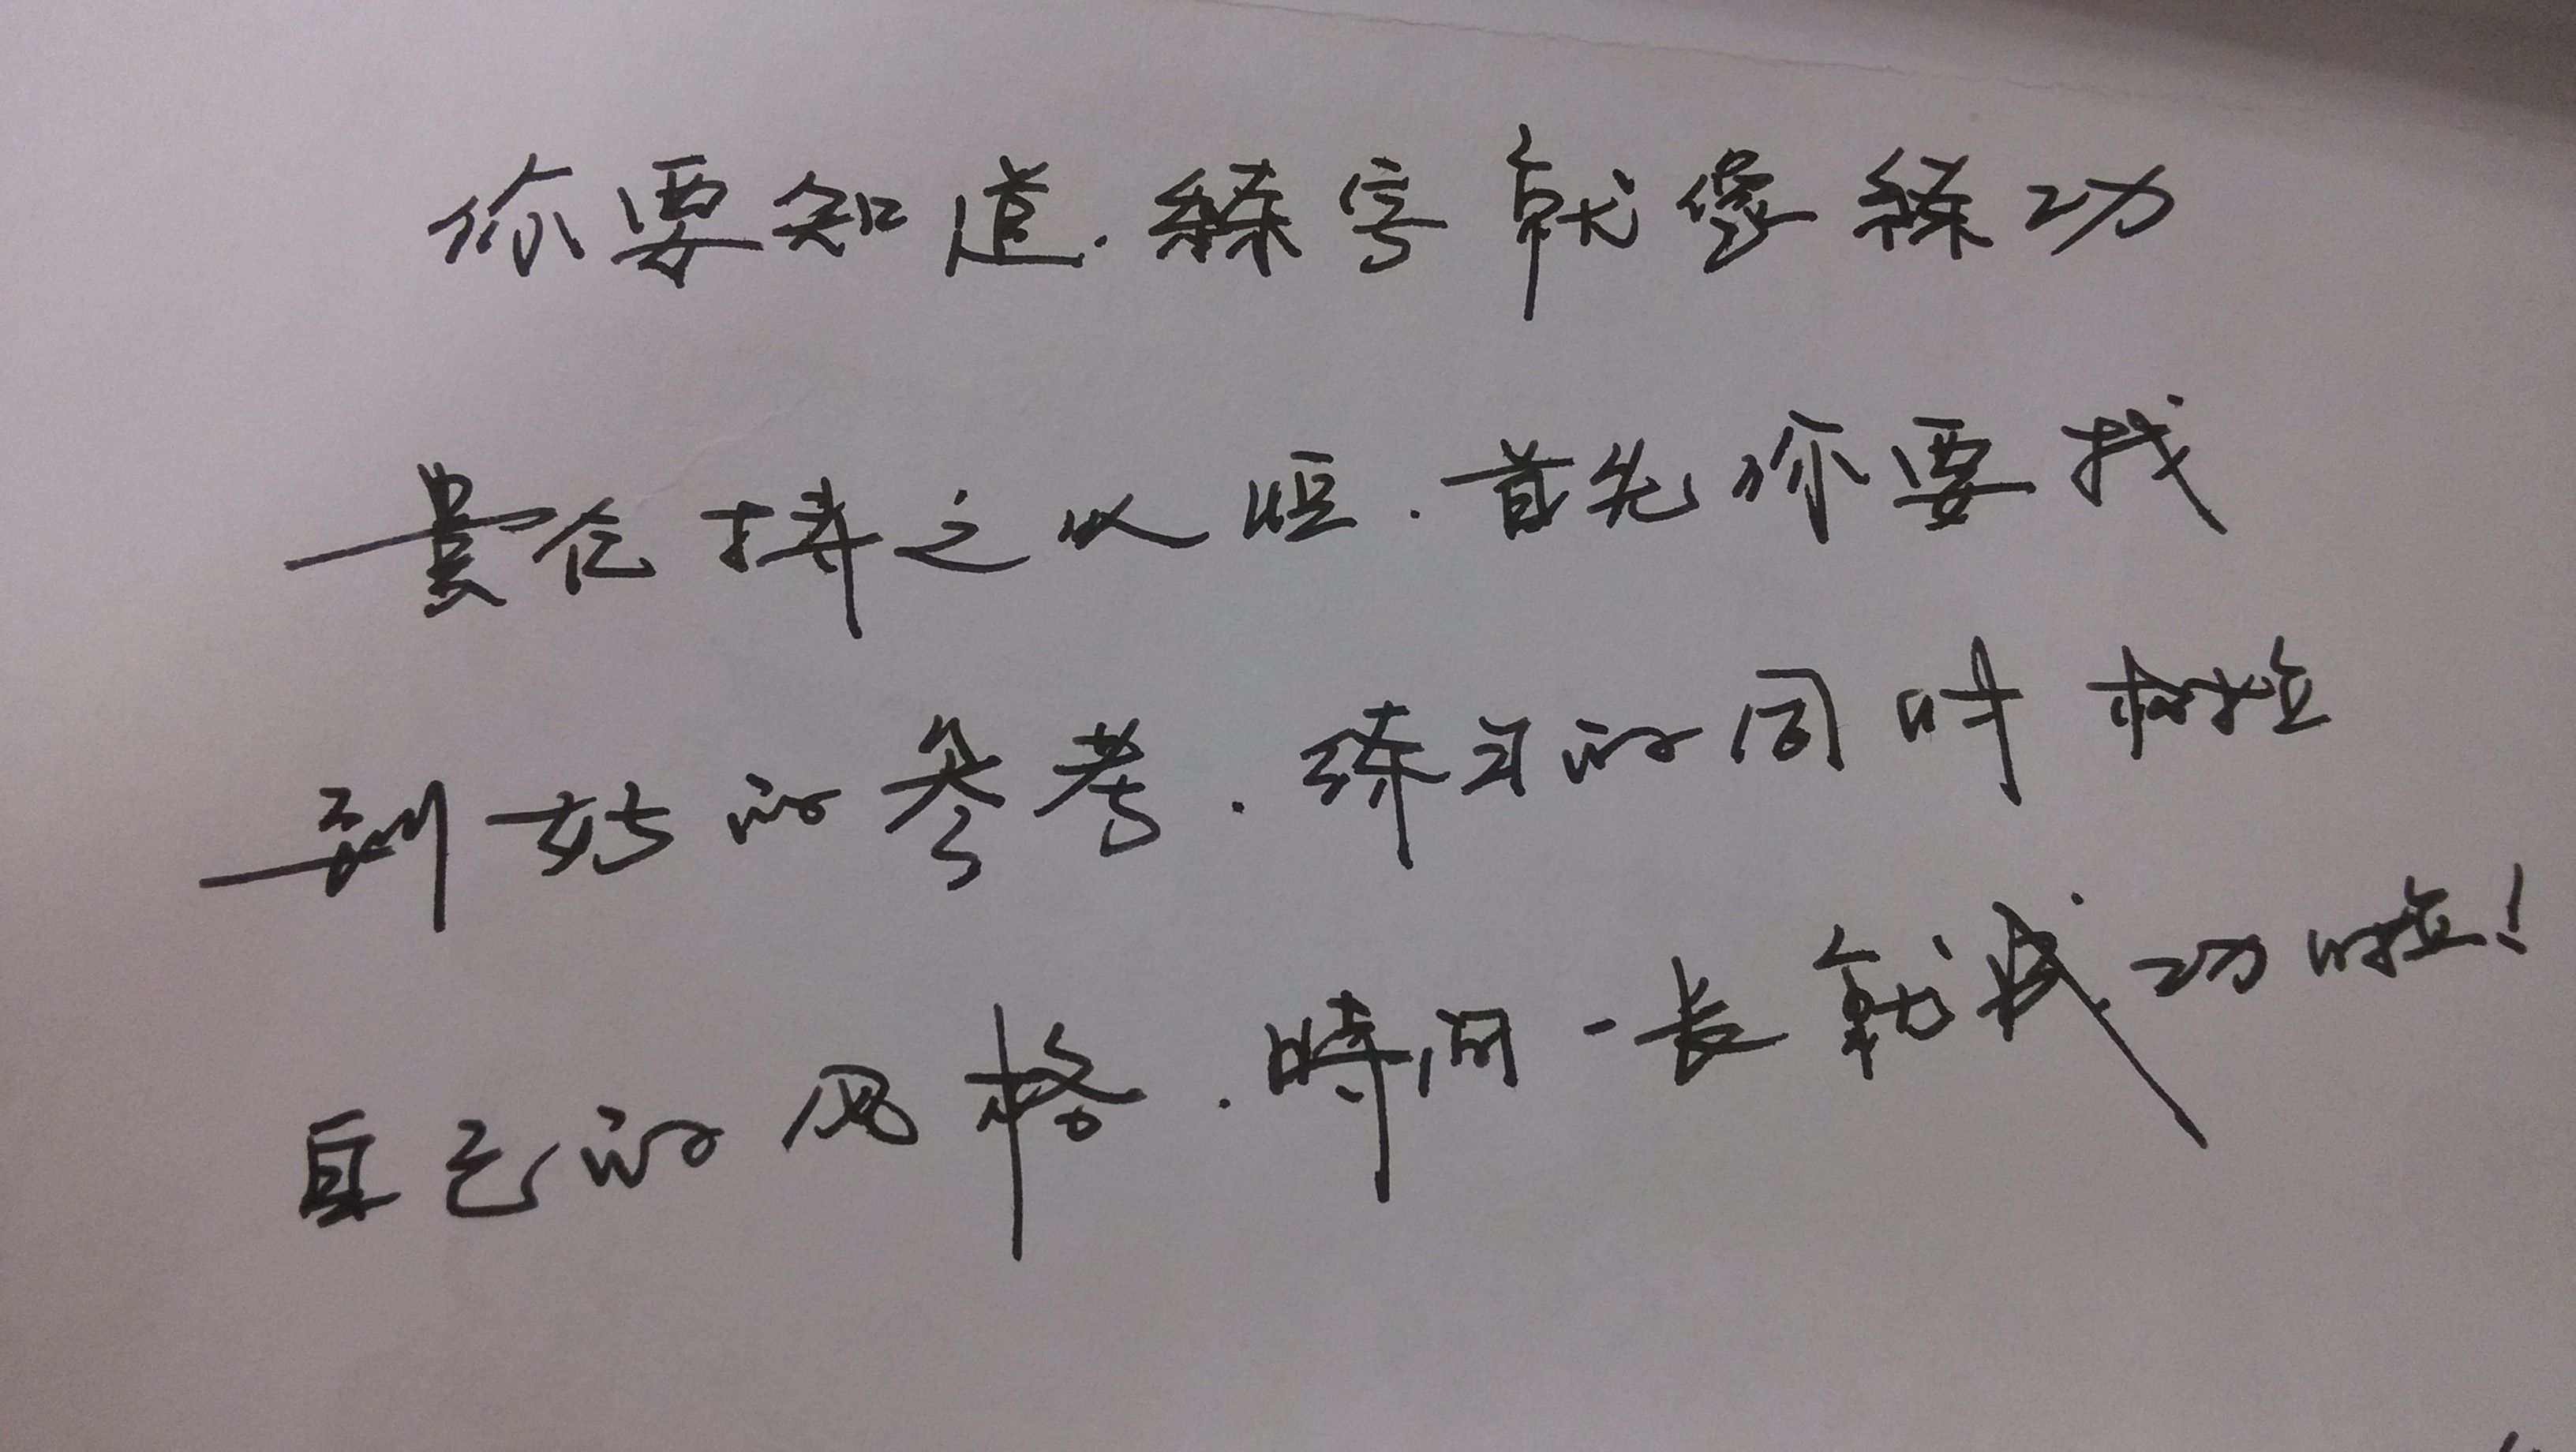 你要知道.練字就像練功
貴在持之以恒.首先你要找
到好的参考.练习的同时树立
自己的风格.時间一长就成功啦!